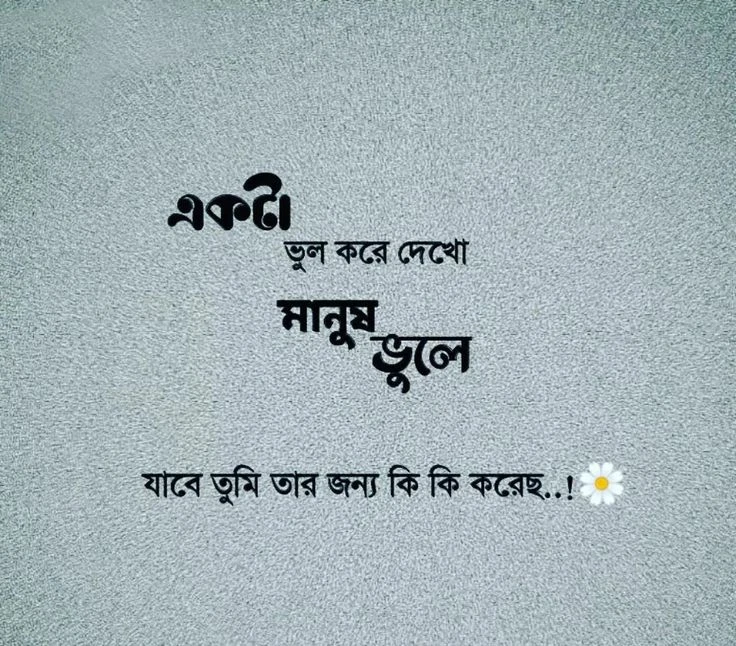 একটা
ভুল করে দেখো
মানুষ
ভুলে
যাবে তুমি তার জন্য কি কি করেছ..!🌼